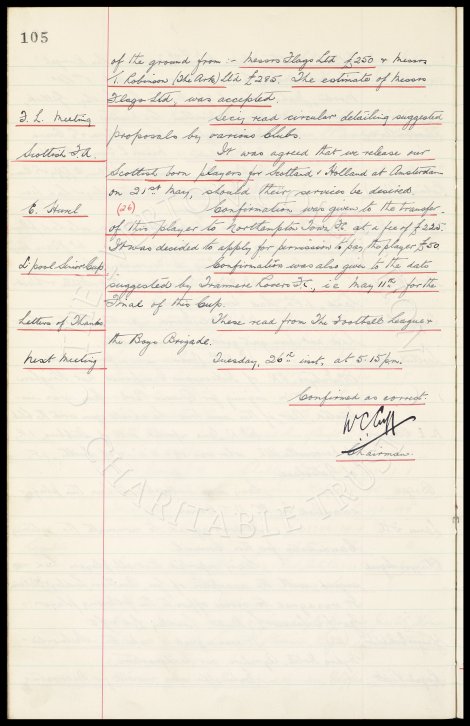 105
of the ground from :- Messrs Flags Ltd £250 & Messrs
T. Robinson (The Ark) Ltd £285. The estimate of Messrs
Flags Ltd, was accepted.
F. L. Meeting Secy read circular detailing suggested
proposals by various Clubs.
Scottish F.A. It was agreed that we release our
Scottish born players for Scotland v Holland at Amsterdam
on 21st May, should their services be desired.
E. Hurel (26) Confirmation was given to the transfer
of this player to Northampton Town FC at a fee of £225.
It was decided to apply for permission to pay the player £50
L'pool Senior Cup Confirmation was also given to the date
suggested by Tranmere Rovers FC, i.e May 11th, for the
Final of this Cup.
Letters of Thanks These read from The Football League &
the Boys Brigade.
Next Meeting Tuesday, 26th inst, at 5.15pm.
Confirmed as correct.
W C Cuff
Chairman.
CHARITABLE TRUST